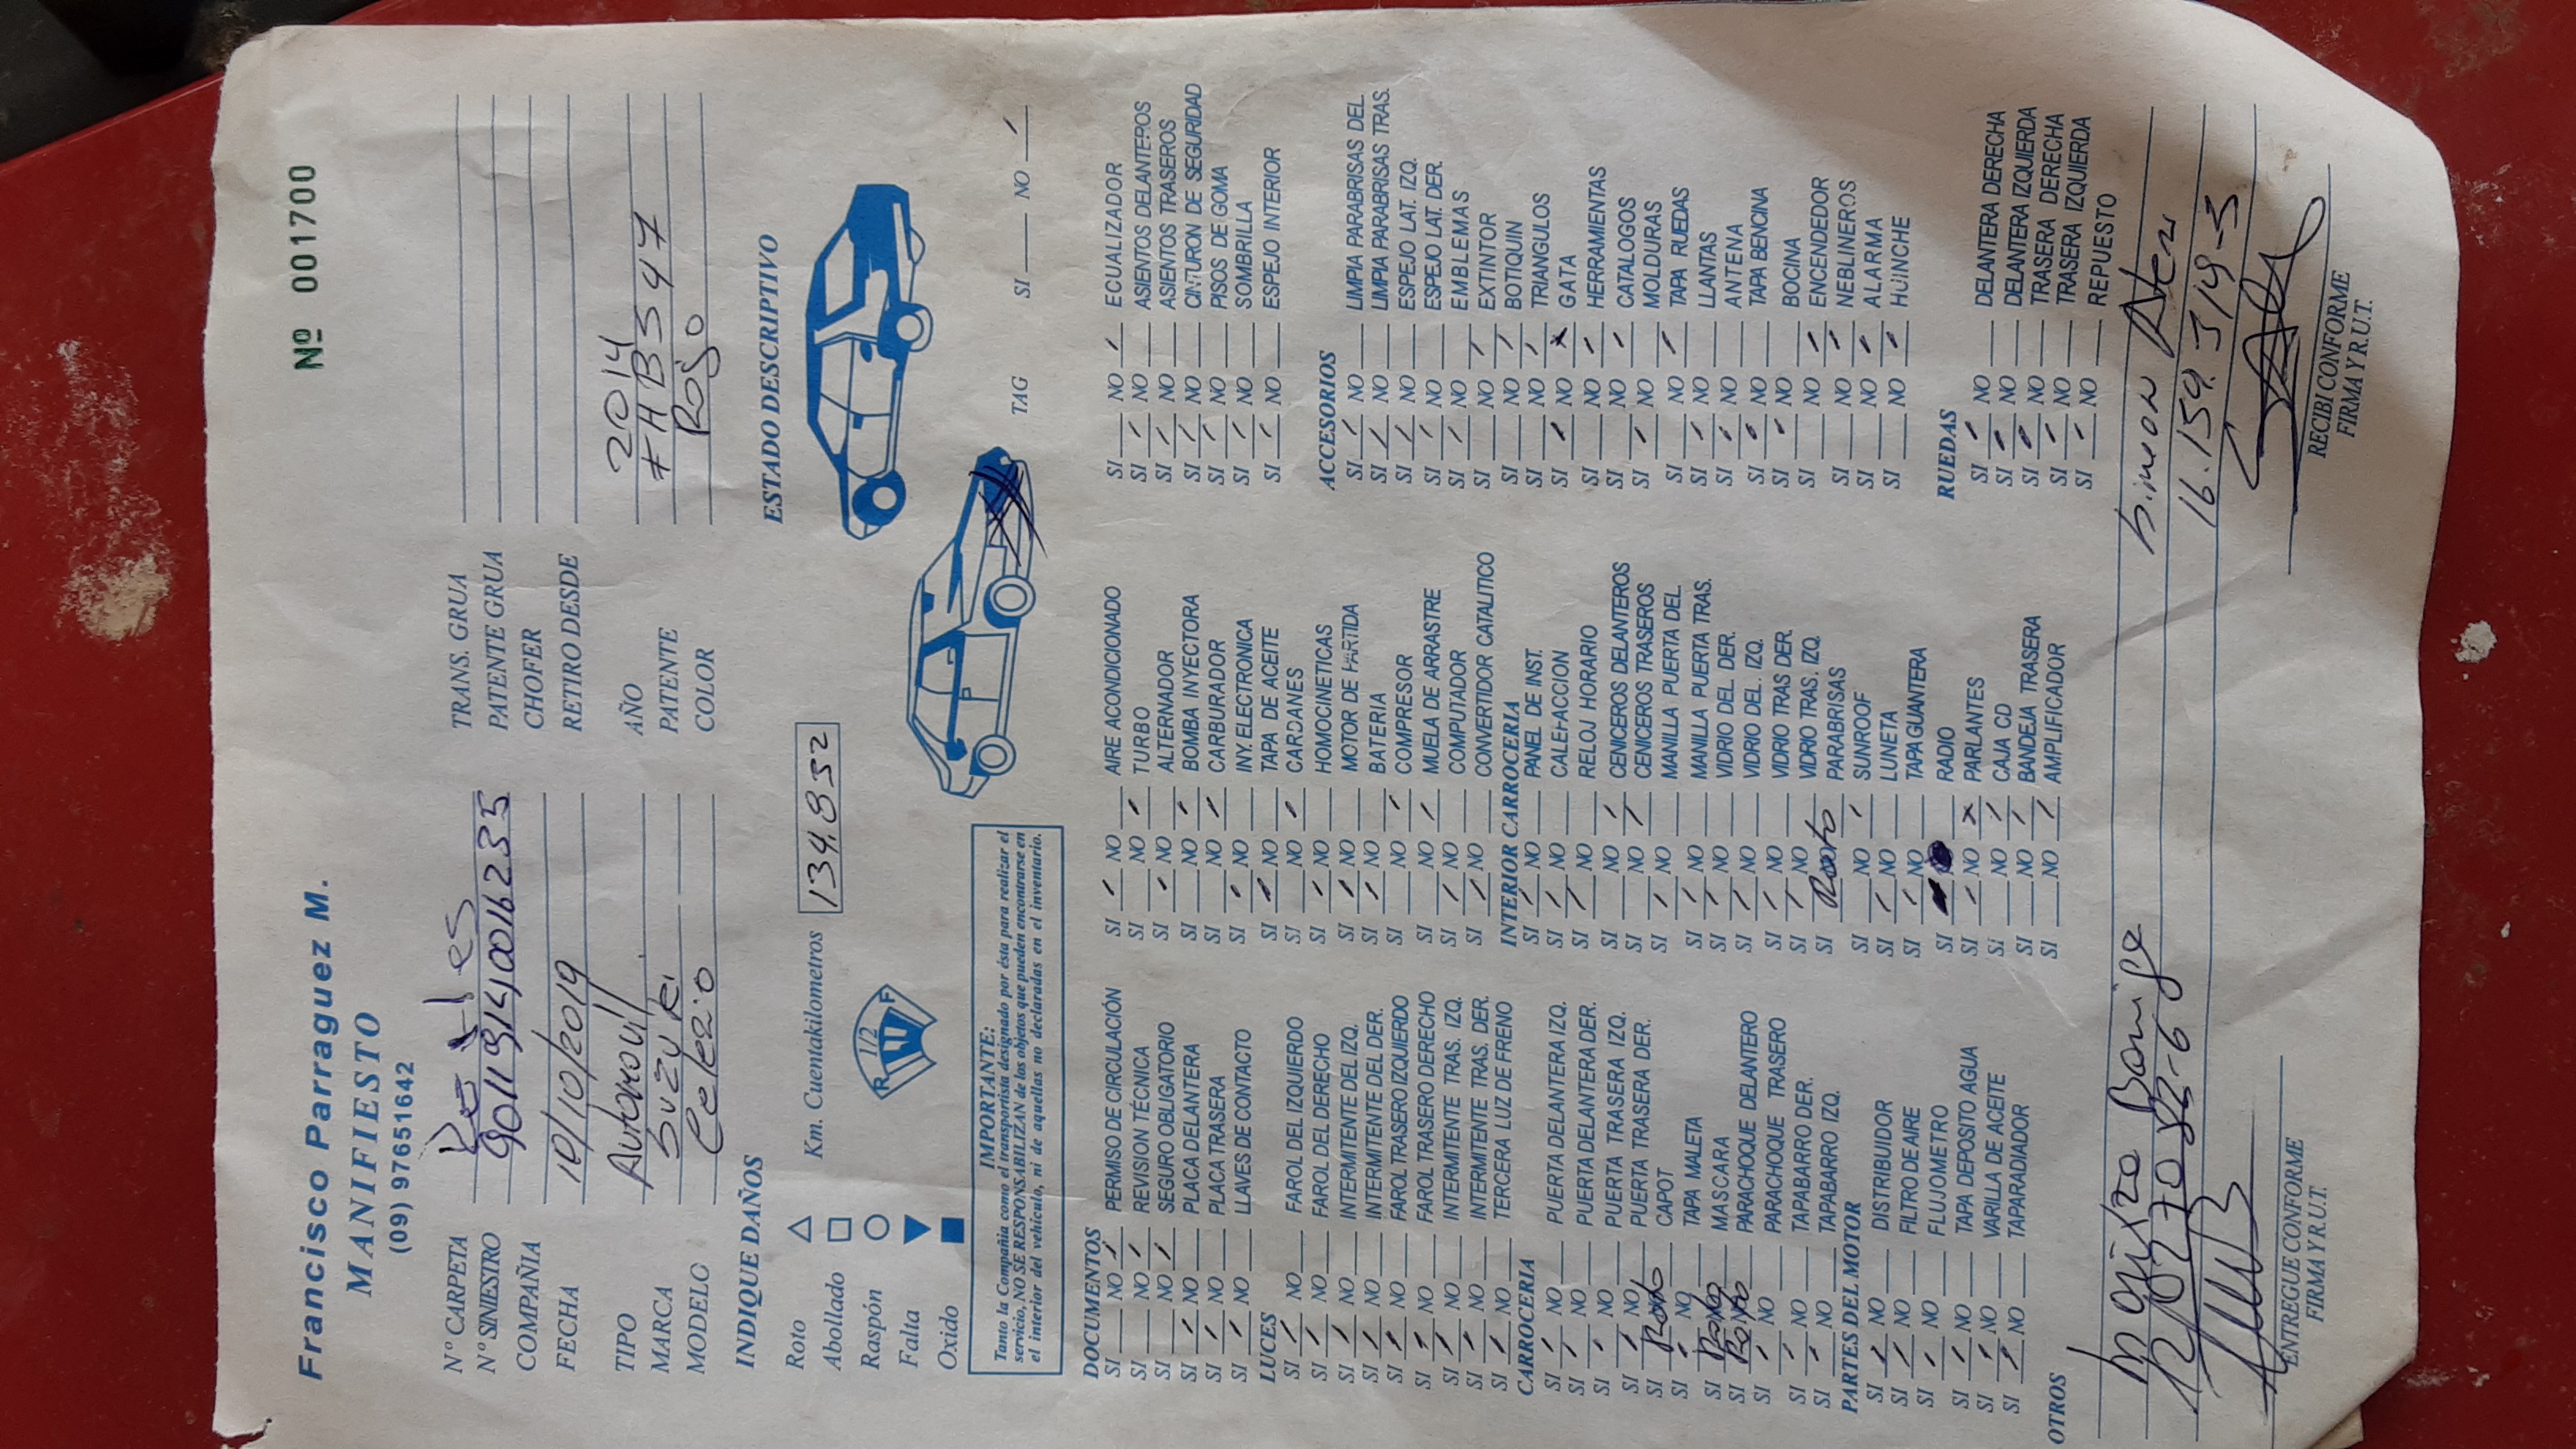 Francisco Parraguez M.
MANIFIESTO
(09) 97651642
Nº 001700
Nº CARPETA
Nº SINIESTRO 90119140016235
COMPAÑIA
FECHA 10/10/2019
TIPO Automovil
MARCA Suzuki
MODELO Celerio
TRANS. GRUA
PATENTE GRUA
CHOFER
RETIRO DESDE
AÑO 2014
PATENTE
COLOR Rojo
INDIQUE DAÑOS
Roto
Abollado
Raspón
Falta
Oxido
Km. Cuentakilometros 134.832
R 1/2 F
W
ESTADO DESCRIPTIVO
IMPORTANTE:
Tanto la Compañia como el transportista designado por ésta para realizar el
servicio, NO SE RESPONSABILIZAN de los objetos que pueden encontrarse en
el interior del vehículo, ni de aquellas no declaradas en el inventario.
TAG SI NO
DOCUMENTOS
SI NO PERMISO DE CIRCULACIÓN
SI NO REVISION TÉCNICA
SI NO SEGURO OBLIGATORIO
SI NO PLACA DELANTERA
SI NO PLACA TRASERA
SI NO LLAVES DE CONTACTO
LUCES
SI NO FAROL DEL IZQUIERDO
SI NO FAROL DEL DERECHO
SI NO INTERMITENTE DEL IZQ.
SI NO INTERMITENTE DEL DER.
SI NO FAROL TRASERO IZQUIERDO
SI NO FAROL TRASERO DERECHO
SI NO INTERMITENTE TRAS. IZQ.
SI NO INTERMITENTE TRAS. DER.
SI NO TERCERA LUZ DE FRENO
CARROCERIA
SI NO PUERTA DELANTERA IZQ.
SI NO PUERTA DELANTERA DER.
SI NO PUERTA TRASERA IZQ.
SI NO PUERTA TRASERA DER.
SI Roto CAPOT
SI NO TAPA MALETA
SI Roto NO MASCARA
SI Roto NO PARACHOQUE DELANTERO
SI NO PARACHOQUE TRASERO
SI NO TAPABARRO DER.
SI NO TAPABARRO IZQ.
PARTES DEL MOTOR
SI NO DISTRIBUIDOR
SI NO FILTRO DE AIRE
SI NO FLUJOMETRO
SI NO TAPA DEPOSITO AGUA
SI NO VARILLA DE ACEITE
SI NO TAPARADIADOR
SI NO AIRE ACONDICIONADO
SI NO TURBO
SI NO ALTERNADOR
SI NO BOMBA INYECTORA
SI NO CARBURADOR
SI NO INY. ELECTRONICA
SI NO TAPA DE ACEITE
SI NO CARDANES
SI NO HOMOCINETICAS
SI NO MOTOR DE PARTIDA
SI NO BATERIA
SI NO COMPRESOR
SI NO MUELA DE ARRASTRE
SI NO COMPUTADOR
SI NO CONVERTIDOR CATALITICO
INTERIOR CARROCERIA
SI NO PANEL DE INST.
SI NO CALEFACCION
SI NO RELOJ HORARIO
SI NO CENICEROS DELANTEROS
SI NO CENICEROS TRASEROS
SI NO MANILLA PUERTA DEL
SI NO MANILLA PUERTA TRAS.
SI NO VIDRIO DEL DER.
SI NO VIDRIO DEL. IZQ.
SI NO VIDRIO TRAS DER.
SI NO VIDRIO TRAS. IZQ.
SI Roto PARABRISAS
SI NO SUNROOF
SI NO LUNETA
SI NO TAPA GUANTERA
SI RADIO
SI NO PARLANTES
SI NO CAJA CD
SI NO BANDEJA TRASERA
SI NO AMPLIFICADOR
SI NO ECUALIZADOR
SI NO ASIENTOS DELANTEROS
SI NO ASIENTOS TRASEROS
SI NO CINTURON DE SEGURIDAD
SI NO PISOS DE GOMA
SI NO SOMBRILLA
SI NO ESPEJO INTERIOR
ACCESORIOS
SI NO LIMPIA PARABRISAS DEL.
SI NO LIMPIA PARABRISAS TRAS.
SI NO ESPEJO LAT. IZQ.
SI NO ESPEJO LAT. DER.
SI NO EMBLEMAS
SI NO EXTINTOR
SI NO BOTIQUIN
SI NO TRIANGULOS
SI NO GATA
SI NO HERRAMIENTAS
SI NO CATALOGOS
SI NO MOLDURAS
SI NO TAPA RUEDAS
SI NO LLANTAS
SI NO ANTENA
SI NO TAPA BENCINA
SI NO BOCINA
SI NO ENCENDEDOR
SI NO NEBLINEROS
SI NO ALARMA
SI NO HUINCHE
RUEDAS
SI NO DELANTERA DERECHA
SI NO DELANTERA IZQUIERDA
SI NO TRASERA DERECHA
SI NO TRASERA IZQUIERDA
SI NO REPUESTO
OTROS
16.159.319-5
ENTREGUE CONFORME
FIRMA Y R.U.T.
RECIBI CONFORME
FIRMA Y R.U.T.